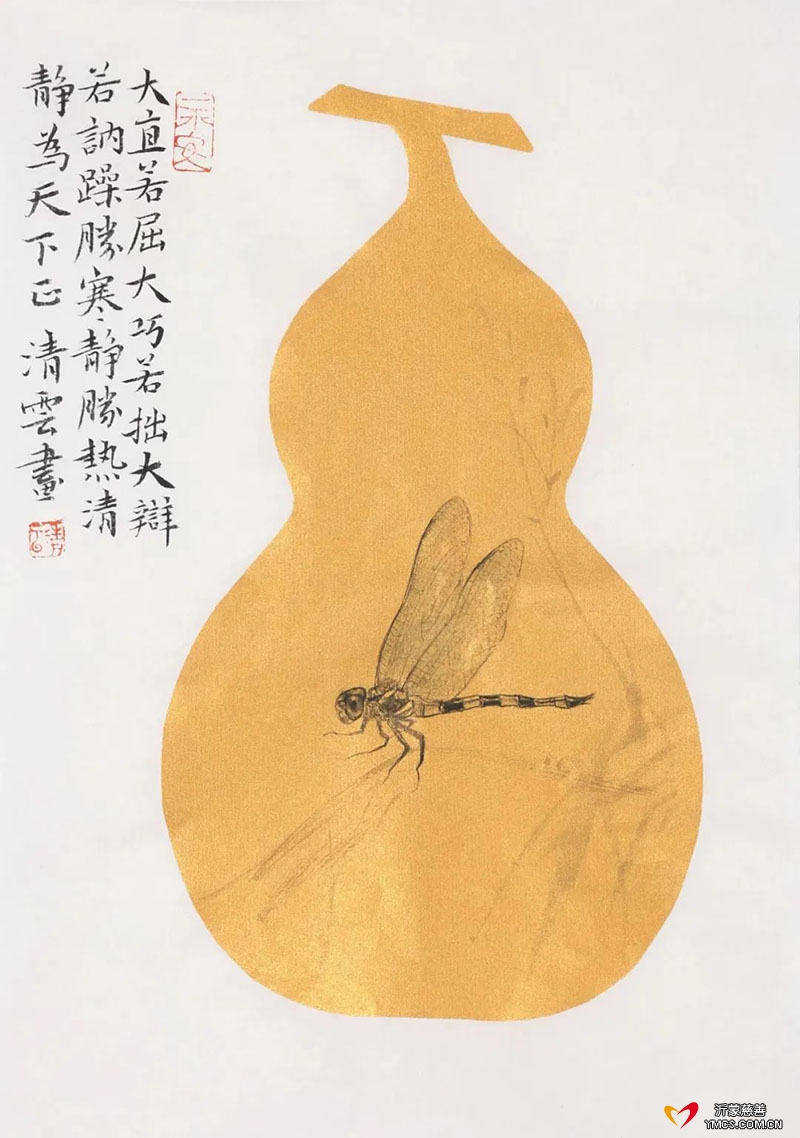 大直若屈大巧若拙大辯
若訥躁勝寒静勝热清
静為天下正清雲畫
沂蒙慈善
YMCS.COM.CN